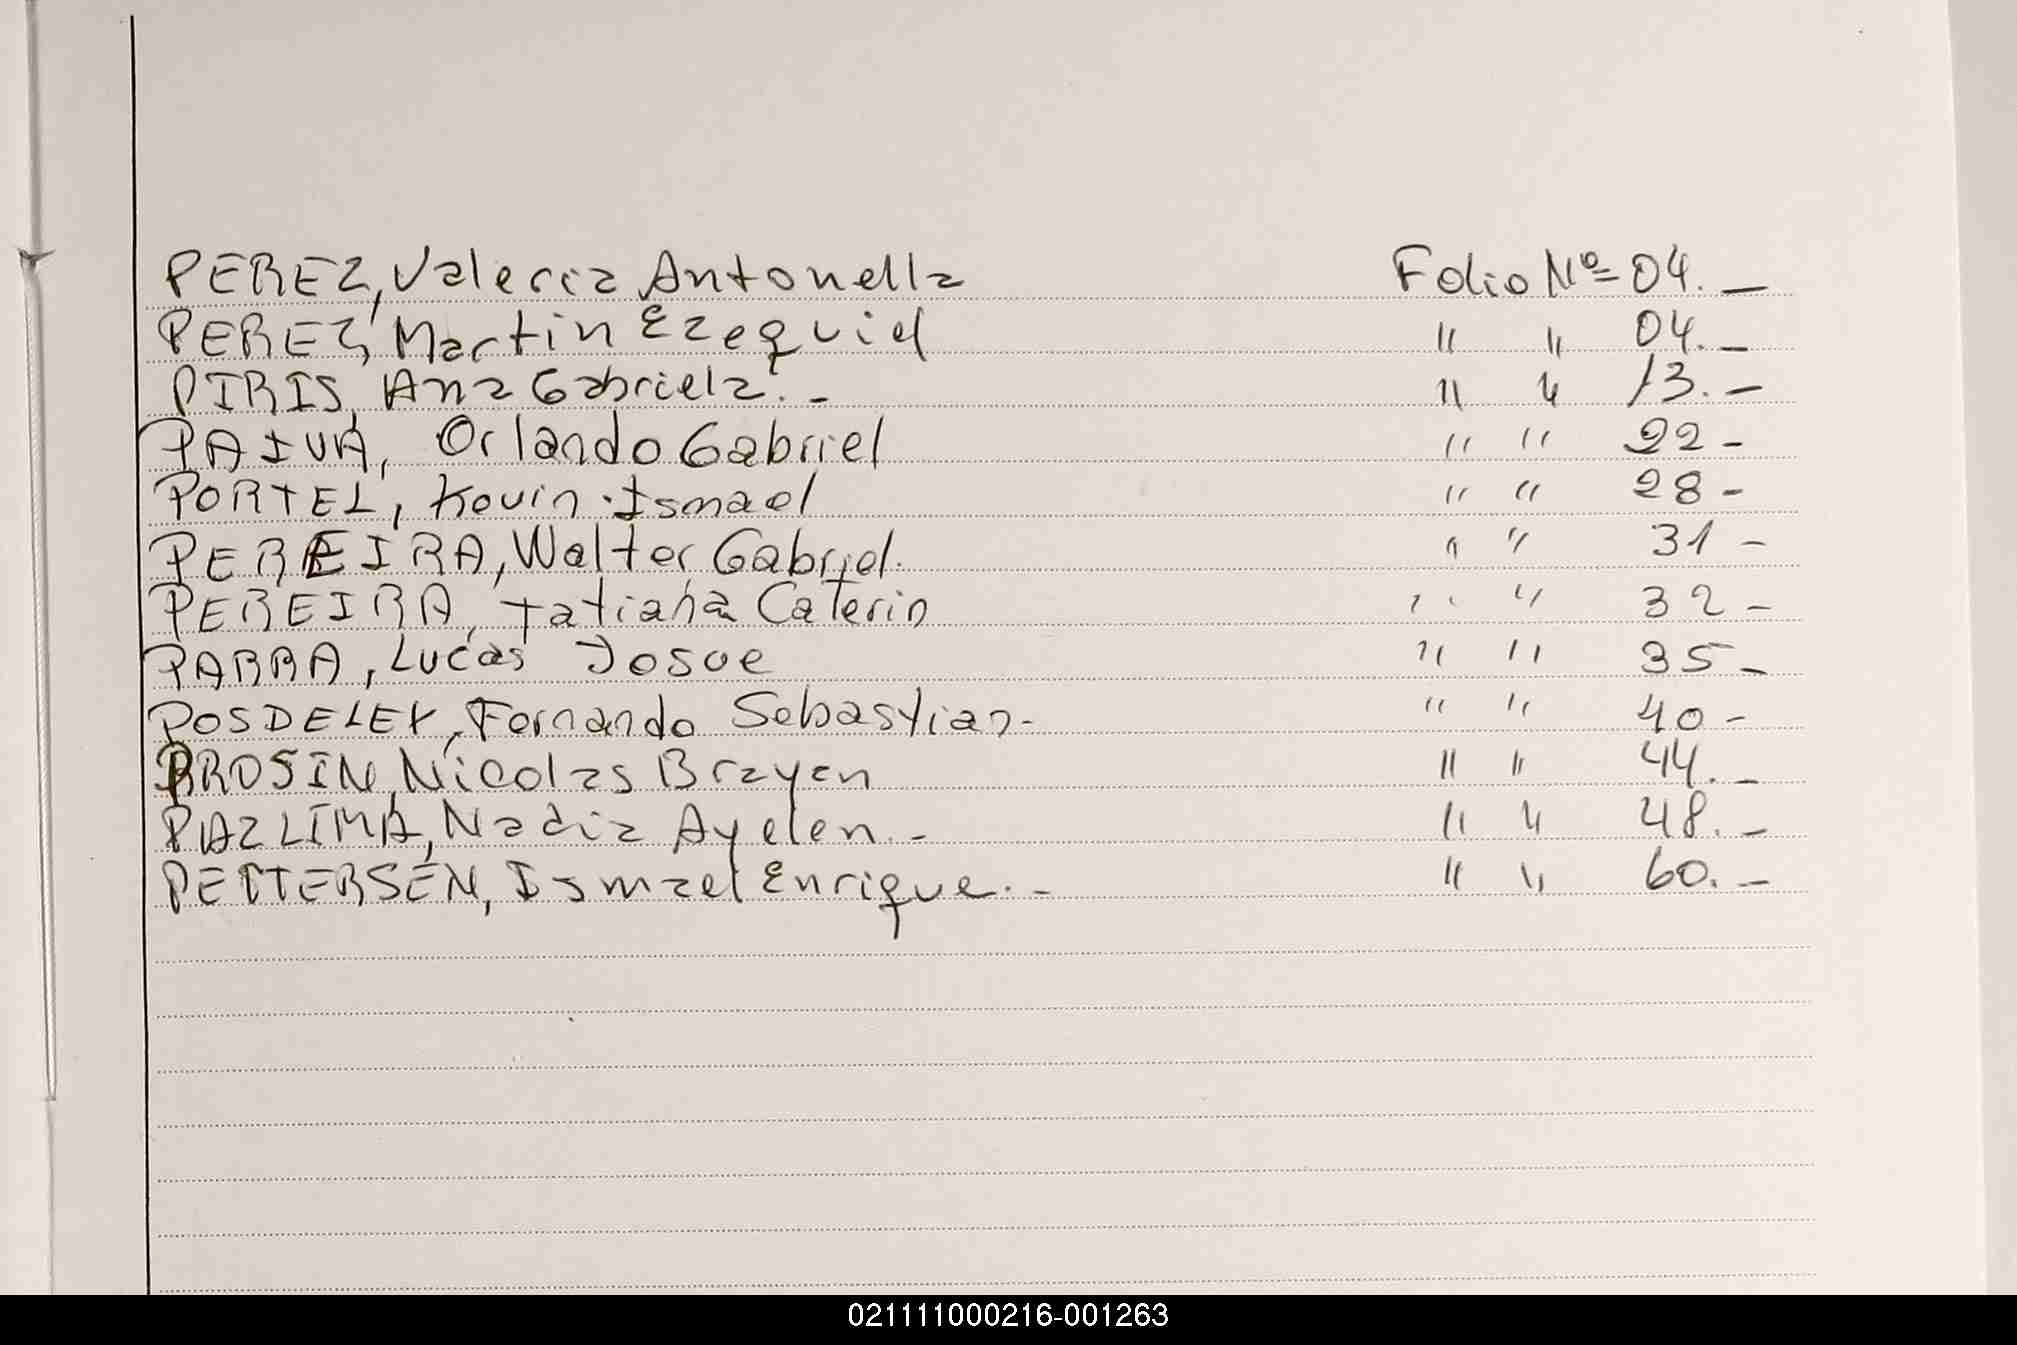 PEREZ, Valeria Antonella Folio Nº 04. —
PEREZ, Martin Ezequiel " " 04. —
PIRIS, Ana Gabriela. - " " 13. —
PAIVA, Orlando Gabriel " " 22 -
PORTEL, Kevin Ismael " " 28 -
PEREIRA, Walter Gabriel. " " 31 -
PEREIRA, Tatiana Caterin " " 32 -
PARRA, Lucas Josue " " 35 -
POSDELEY, Fernando Sebastian - " " 40 -
PROSIN, Nicolas Brayan " " 44. -
PAZ LIMA, Nadia Ayelen. - " " 48. -
PETTERSEN, Ismael Enrique. - " " 60. -
021111000216-001263